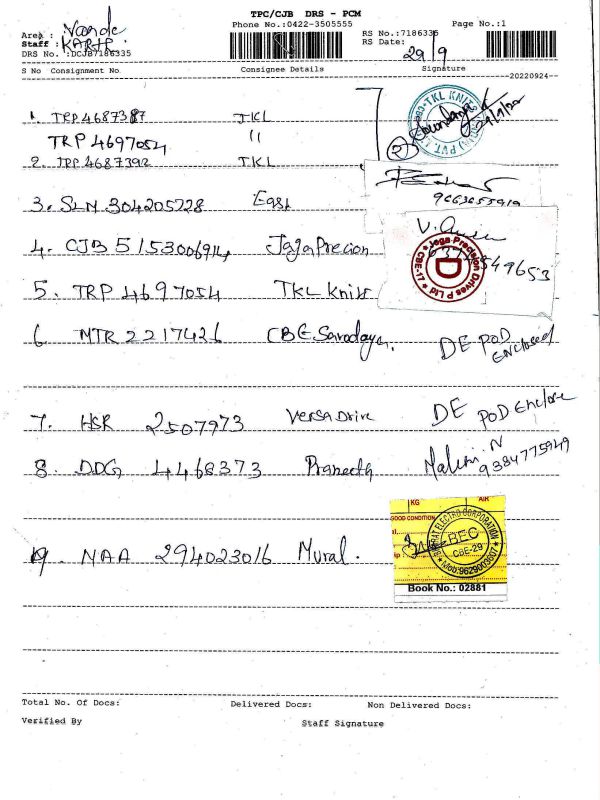 TPC/CJB DRS - PCM
Phone No.:0422-3505555 Page No.:1
Area : Vande
Staff : KARTI
RS No.:7186335
DRS No. :DCJB7186335
RS Date: 29/9
S No Consignment No Consignee Details Signature
20220924
1. TRP 4687387 TKL
TRP 4697054 "
2. TRP 4687392 TKL
TKL KNITS
3. SLN 304205228 East
9663655919
4. CJB 5153006914 Jaga Precion
Jaga Precision Drives P Ltd
CBE-17
D
5. TRP 4697054 TKL Knits
6 MTR 2217426 CBE Sarvodaya. DE POD ENCLOSED
7. HSR 2507973 Versa Drive DE POD Enclose
8. DDG 4468373 Praneeth Malini. N
9384775949
KG AIR
GOOD CONDITION
9. NAA 294023016 Mural.
ELECTRO CORPORATION
BEC
CBE-29
Mob:9629003007
Book No.: 02881
Total No. Of Docs: Delivered Docs: Non Delivered Docs:
Verified By Staff Signature